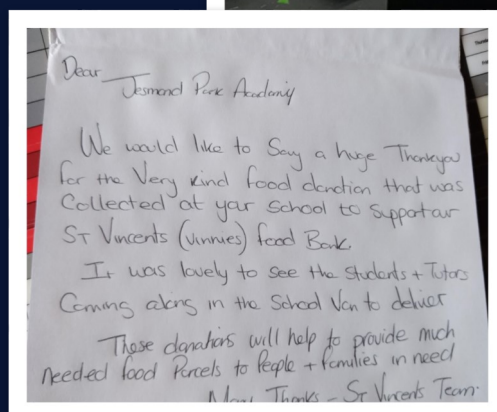 Dear
Jesmond Park Academy
We would like to Say a huge Thankyou
for the Very kind food donation that was
Collected at your School to Support our
ST Vincents (Vinnies) food Bank
It was lovely to see the Students + Tutors
Coming along in the School Van to deliver
These donations will help to provide much
needed food Parcels to People + families in need
Many Thanks - ST Vincents Team.